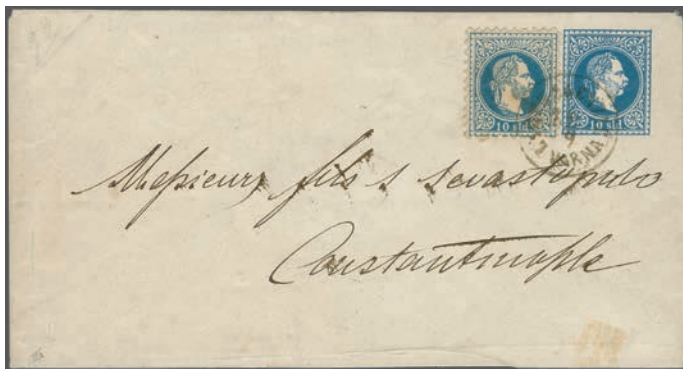 10 sld 10 sld
VARNA
Messieurs fils & Sevastopulo
Constantinople